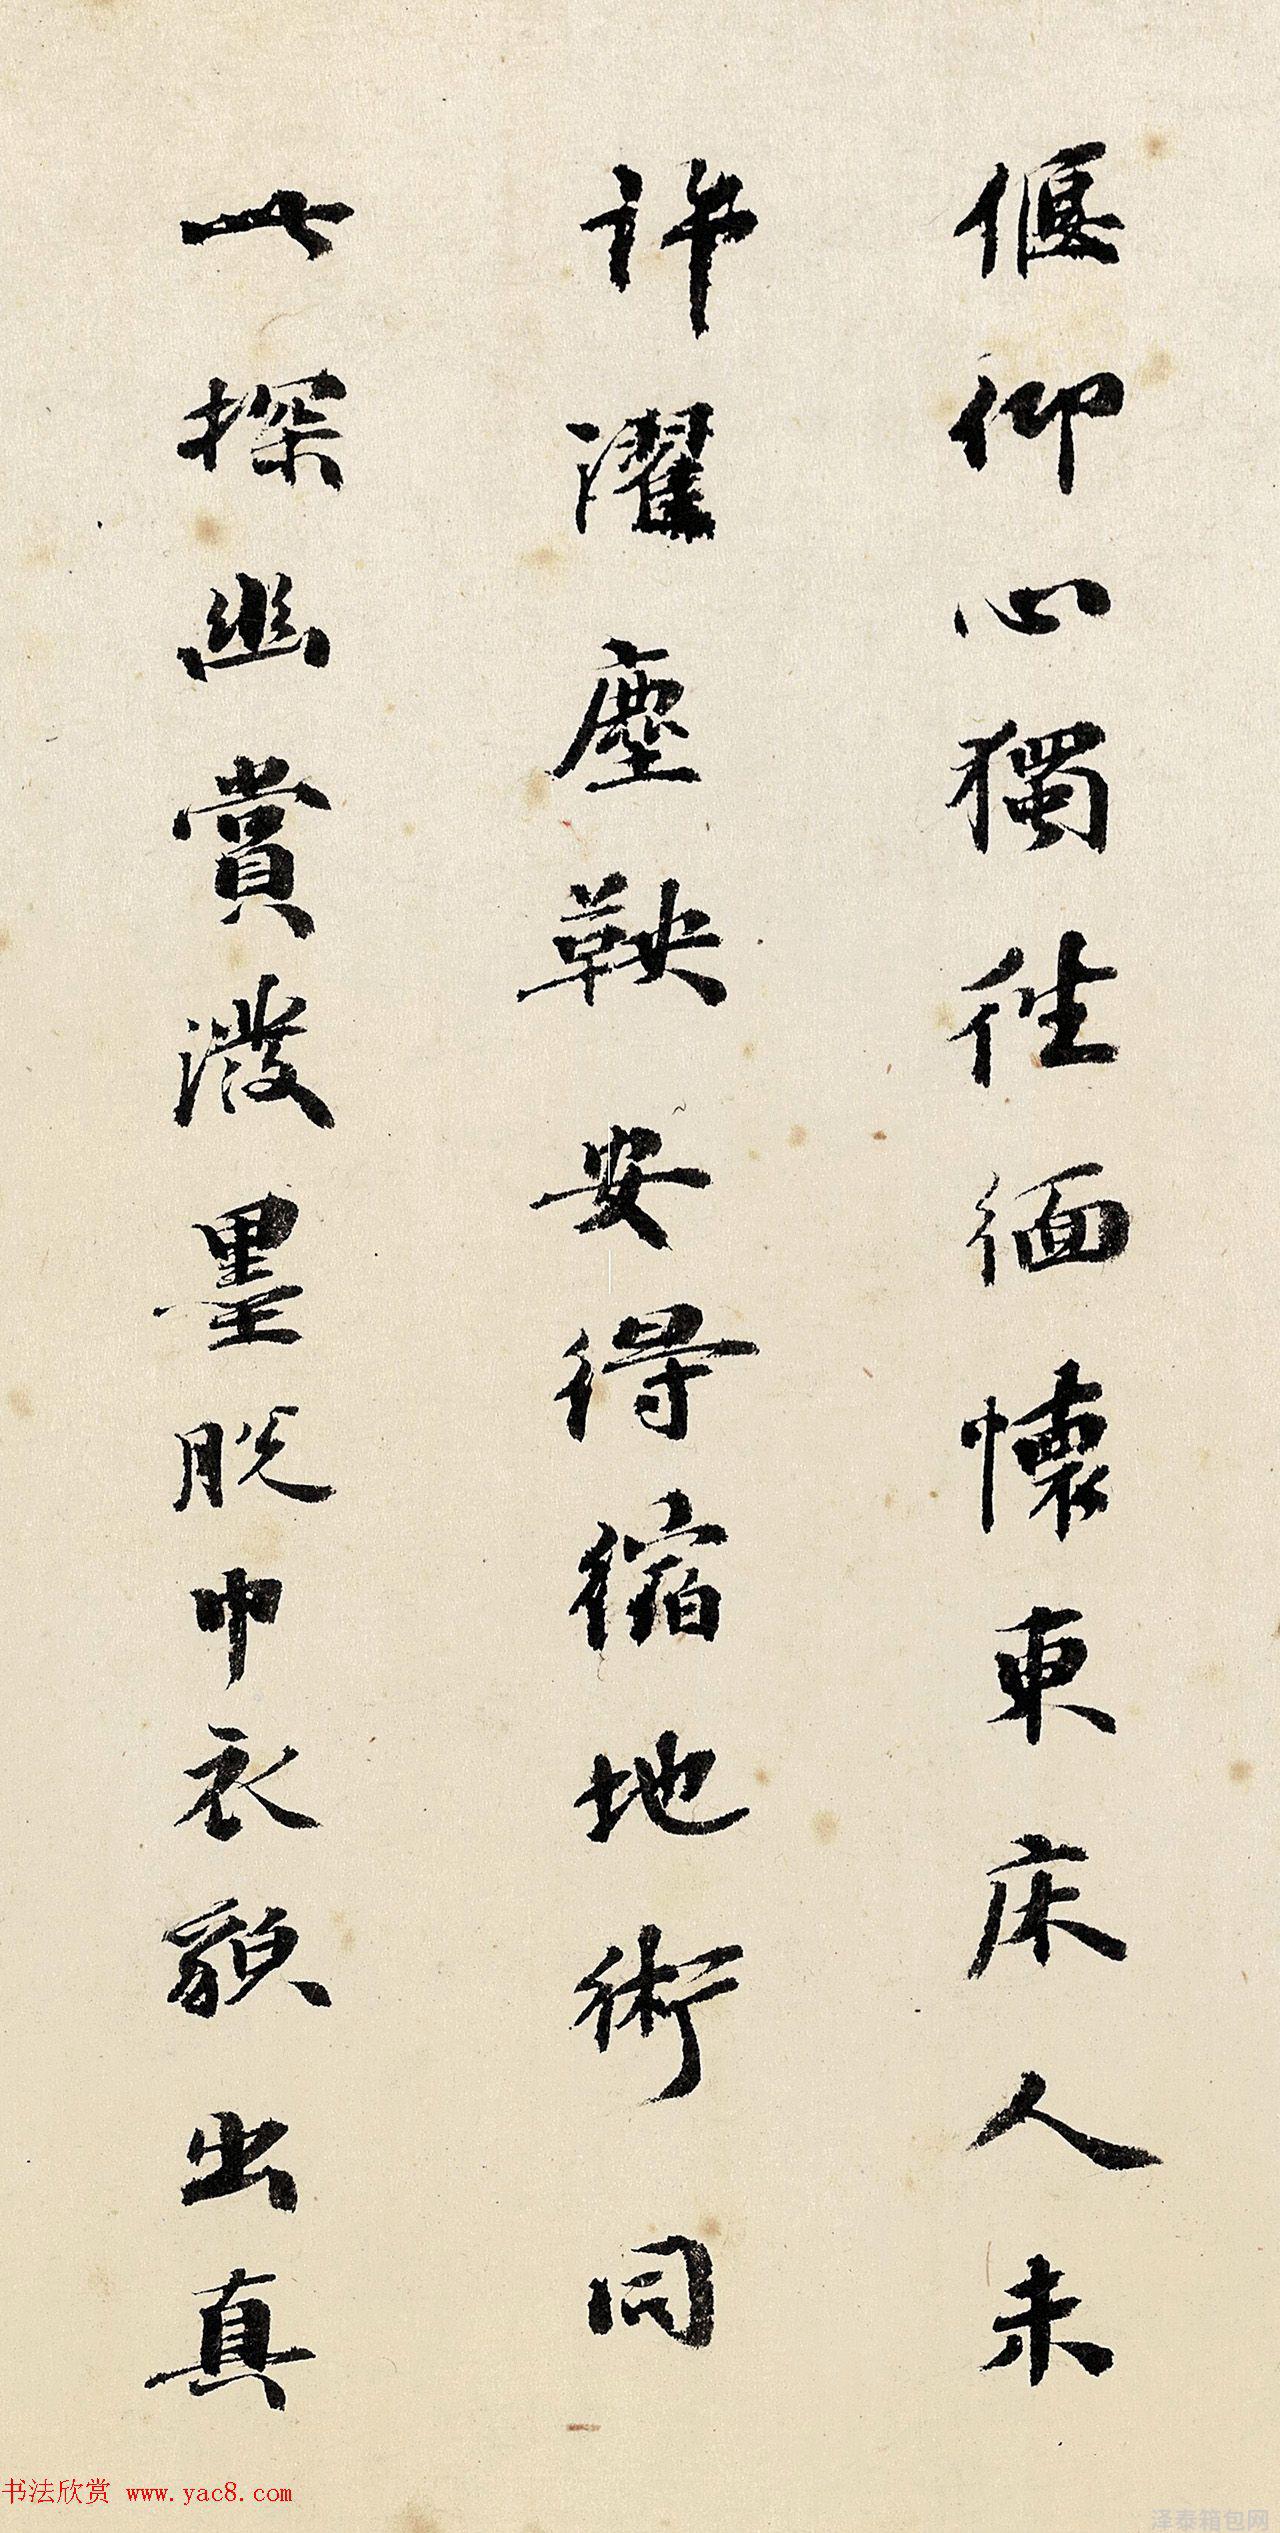 偃仰心獨往緬懷東床人未
許濯塵鞅安得縮地術同
此探幽賞潑墨脫巾衣貌出真
书法欣赏 www.yac8.com
泽泰箱包网